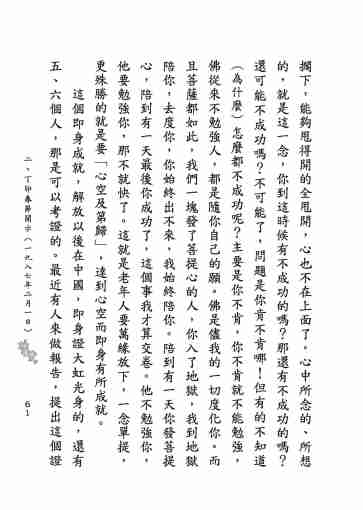 擱下，能夠甩得開的全甩開，心也不在上面了。心中所念的、所想
的，就是這一念，你到這時候有不成功的嗎？那還有不成功的嗎？
還可能不成功嗎？不可能了，問題是你肯不肯哪！但有的不知道
（為什麼）怎麼都不成功呢？主要是你不肯，你不肯就不能勉強，
佛從來不勉強人，都是隨你自己的願。佛是儘我的一切度化你。而
且菩薩都如此，我們一塊發了菩提心的人，你入了地獄，我到地獄
陪你，去度你，你始終出不來，我始終陪你。陪到有一天你發菩提
心，陪到有一天最後你成功了，這個事我才算交卷。他不勉強你，
他要勉強你，那不就快了。這就是老年人要萬緣放下，一念單提，
更殊勝的就是要「心空及第歸」，達到心空而即身有所成就。
這個即身成就，解放以後在中國，即身證大虹光身的，還有
五、六個人，那是可以考證的。最近有人來做報告，提出這個證
二、丁卯春節開示（一九八七年二月一日）
61